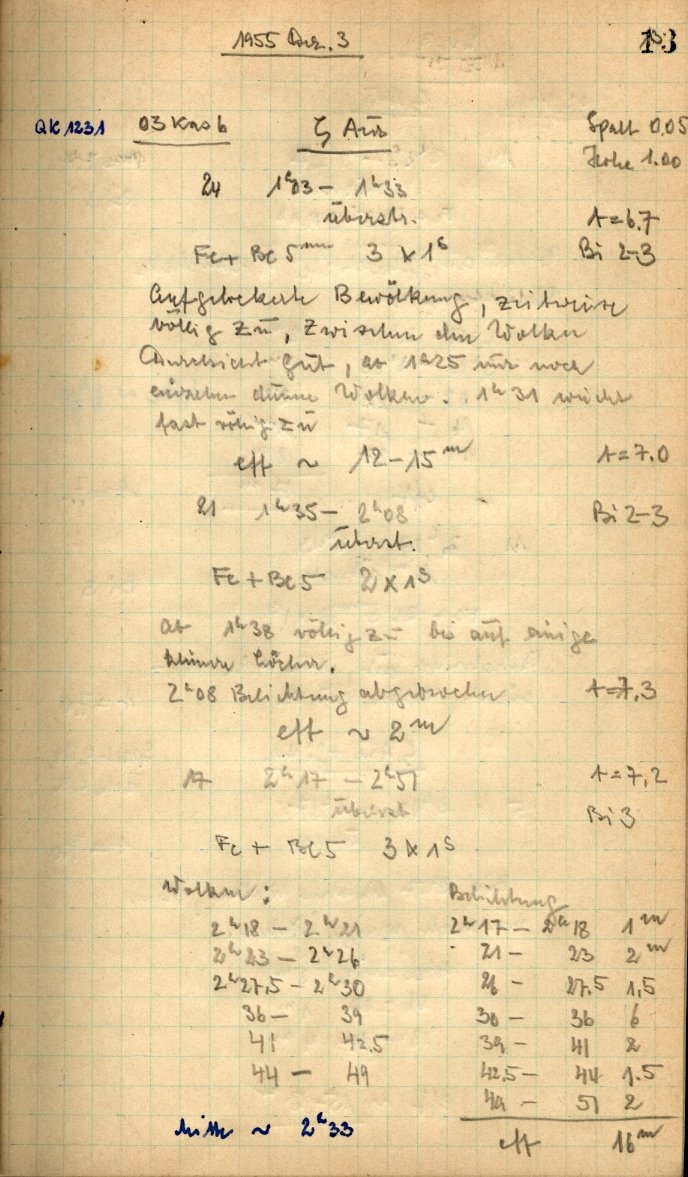 1955 Dez. 3
13
QK 1231 03 Kas b ζ Aur Spalt 0.05
Höhe 1.00
24 1h03 – 1h33
überstr. t=6.7
Fe + Be 5mm 3 x 1s Bi 2-3
Aufgelockerte Bewölkung, zeitweise
völlig zu, zwischen den Wolken
Durchsicht gut, ab 1h25 nur noch
einzelne dünne Wolken. 1h31 wieder
fast völlig zu
eff ~ 12–15m t=7.0
21 1h35 – 2h08 Bi 2-3
überst.
Fe + Be 5 2 x 1s
ab 1h38 völlig zu bis auf einige
kleinere Löcher.
2h08 Belichtung abgebrochen t=7,3
eff ~ 2m
17 2h17 – 2h51 t=7,2
überst Bi 3
Fe + Be 5 3 x 1s
Wolken: Belichtung
2h18 – 2h21 2h17 – 2h18 1m
2h23 – 2h26 21 – 23 2m
2h27,5 – 2h30 26 – 27.5 1,5
36 – 39 30 – 36 6
41 42.5 39 – 41 2
44 – 49 42.5 – 44 1.5
49 – 51 2
Mitte ~ 2h33 eff 16m